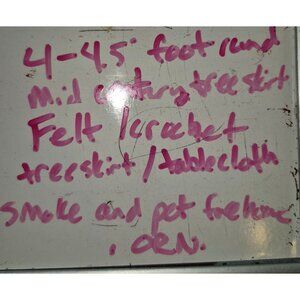 4-4.5' foot round
mid century tree skirt
Felt/crochet
treeskirt/tablecloth
smoke and pet free home
. ORN.